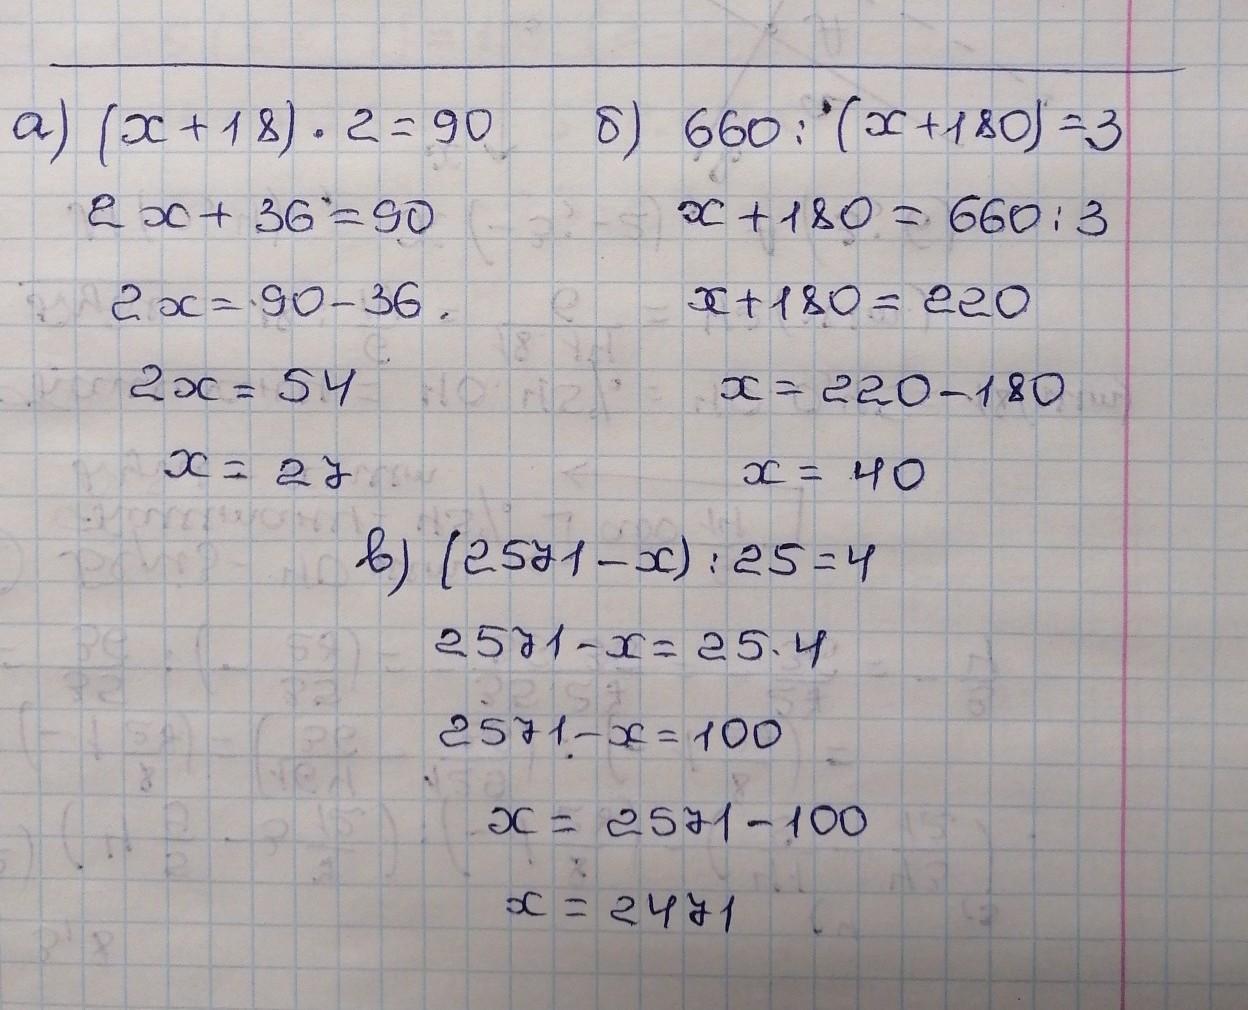 а) (x+18)·2=90
2x+36=90
2x=90-36.
2x=54
x=27
б) 660:(x+180)=3
x+180=660:3
x+180=220
x=220-180
x=40
в) (2571-x):25=4
2571-x=25·4
2571-x=100
x=2571-100
x=2471